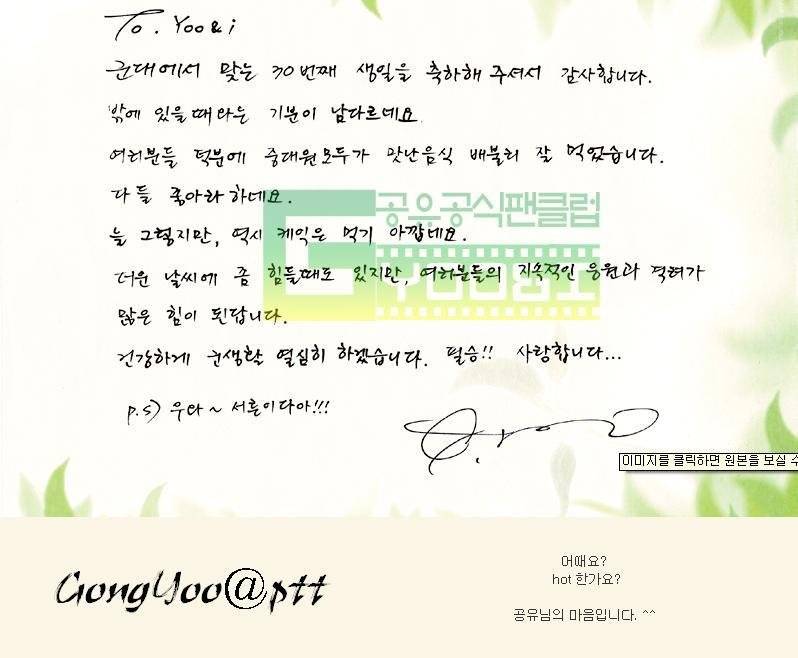 To. Yoo & i
군대에서 맞는 30번째 생일을 축하해 주셔서 감사합니다.
밖에 있을때와는 기분이 남다르네요.
여러분들 덕분에 중대원모두가 맛난음식 배불리 잘 먹었습니다.
다들 좋아라 하네요.
늘 그렇지만, 역시 케익은 먹기 아깝네요.
더운 날씨에 좀 힘들때도 있지만, 여러분들의 지속적인 응원과 격려가
많은 힘이 된답니다.
건강하게 군생활 열심히 하겠습니다. 필승!! 사랑합니다...
p.s) 우와~ 서른이다아!!!
공유공식팬클럽
이미지를 클릭하면 원본을 보실 수
GongYoo@ptt
어때요?
hot 한가요?
공유님의 마음입니다. ^^